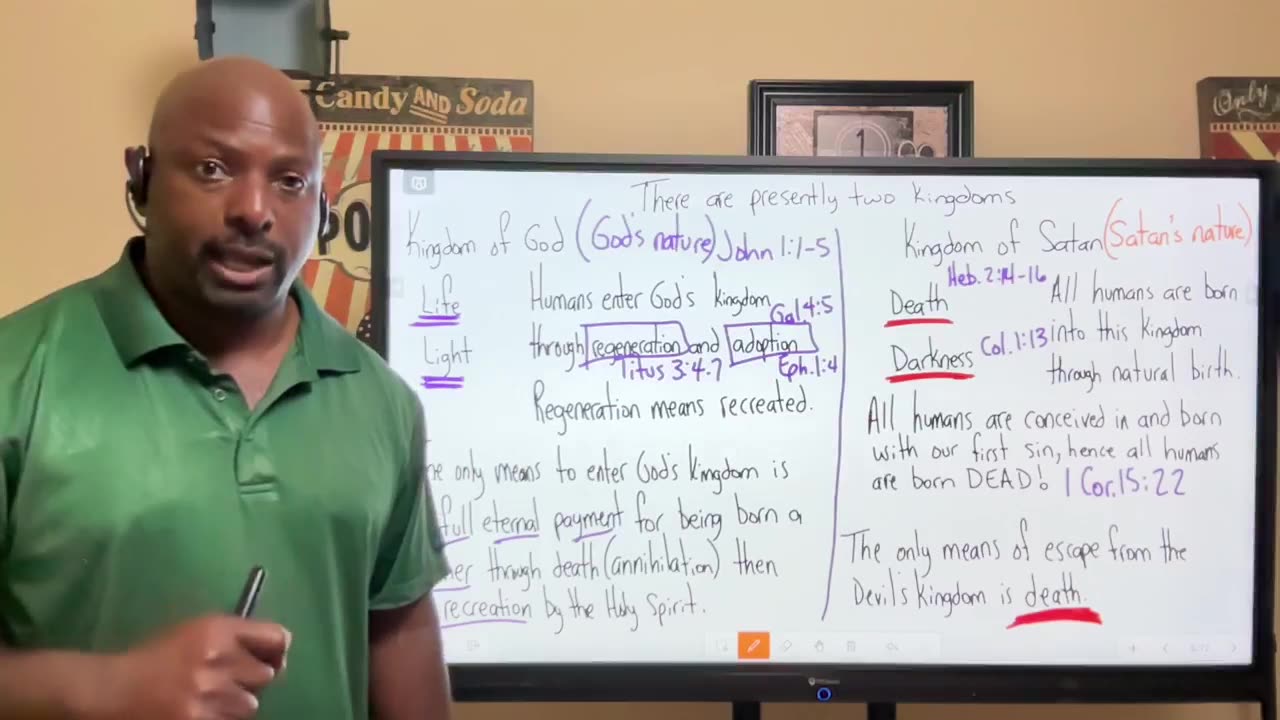 Candy AND Soda
PO
1
Only
There are presently two Kingdoms
Kingdom of God (God's nature) John 1:1-5
Life
Light
Humans enter God's kingdom
Gal 4:5
through regeneration and adoption
Titus 3:4-7
Eph. 1:4
Regeneration means recreated.
only means to enter God's Kingdom is
full eternal payment for being born a
through death (annihilation) then
recreation by the Holy Spirit.
Kingdom of Satan (Satan's nature)
Heb. 2:14-16
Death
Darkness
Col. 1:13
All humans are born
into this Kingdom
through natural birth.
All humans are conceived in and born
with our first sin, hence all humans
are born DEAD! 1 Cor. 15:22
The only means of escape from the
Devil's Kingdom is death.